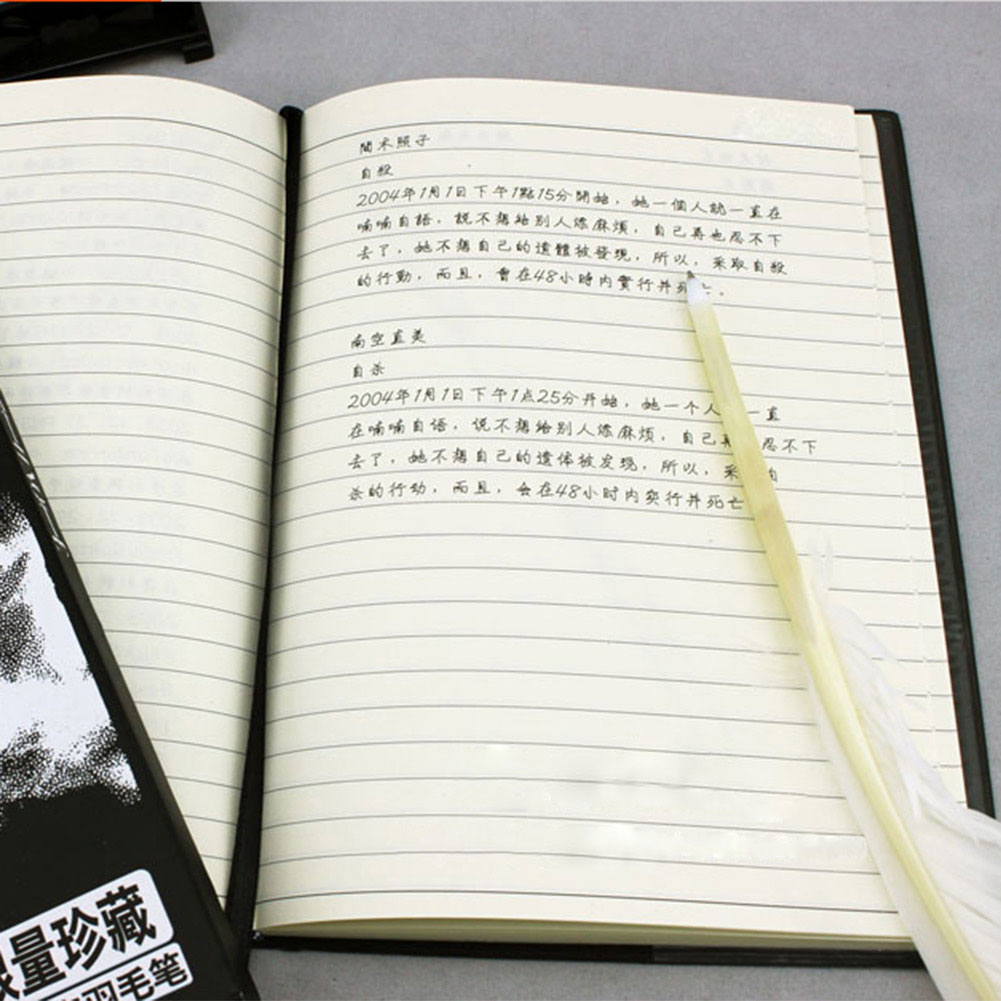 間木照子
自殺
2004年1月1日下午1點15分開始，她一個人就一直在
喃喃自語，說不想給别人添麻煩，自己再也忍不下
去了，她不想自己的遺體被發現，所以，采取自殺
的行動，而且，會在48小時内實行并死亡.
南空直美
自杀
2004年1月1日下午1点25分开始，她一个人 一直
在喃喃自语，说不想给别人添麻烦，自己再 忍不下
去了，她不想自己的遗体被发现，所以，采 自
杀的行动，而且，会在48小时内实行并死亡
限量珍藏
羽毛笔